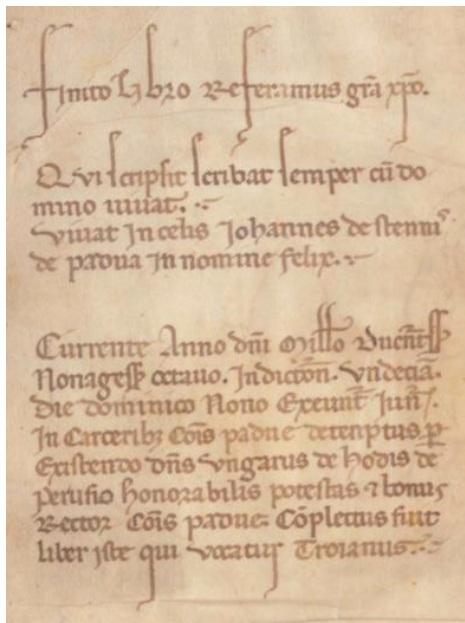 Finito libro Referamus grã xpõ.
Qui scripsit scribat semper cũ do
mino uiuat.
Viuat In celis Johannes de stennis
de padua In nomine felix.
Currente Anno dñi Millo Ducentess
Nonagess octauo. Indictoñ. vndeciã.
Die dominico Nono Exeunt Iuñ.
In Carceribz Cõis padue detemptus p
Existendo dñs vngarus de hodis de
perusio honorabilis potestas ⁊ bonus
Rector Cõis padue: Cõplectus fuit
liber iste qui vocatur Troianus.